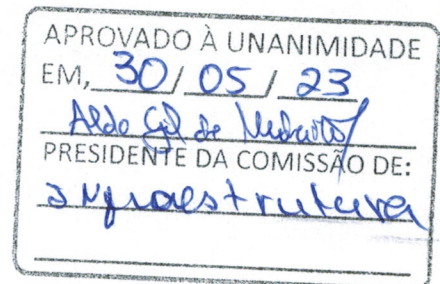 APROVADO À UNANIMIDADE
EM, 30 / 05 / 23
Aldo Gil de
PRESIDENTE DA COMISSÃO DE:
Infraestrutura